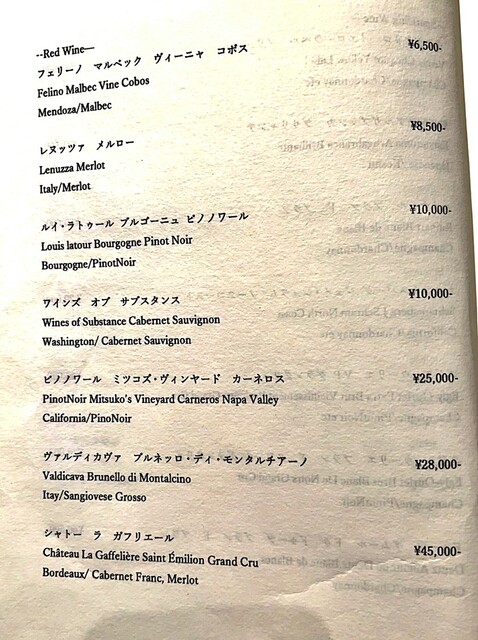 --Red Wine—
フェリーノ　マルベック　ヴィーニャ　コボス ¥6,500-
Felino Malbec Vine Cobos
Mendoza/Malbec
レヌッツァ　メルロー ¥8,500-
Lenuzza Merlot
Italy/Merlot
ルイ・ラトゥール ブルゴーニュ ピノノワール ¥10,000-
Louis latour Bourgogne Pinot Noir
Bourgogne/PinotNoir
ワインズ　オブ　サブスタンス ¥10,000-
Wines of Substance Cabernet Sauvignon
Washington/ Cabernet Sauvignon
ピノノワール　ミツコズ・ヴィンヤード　カーネロス ¥25,000-
PinotNoir Mitsuko's Vineyard Carneros Napa Valley
California/PinoNoir
ヴァルディカヴァ　ブルネッロ・ディ・モンタルチアーノ ¥28,000-
Valdicava Brunello di Montalcino
Itay/Sangiovese Grosso
シャトー　ラ　ガフリエール ¥45,000-
Château La Gaffelière Saint Émilion Grand Cru
Bordeaux/ Cabernet Franc, Merlot